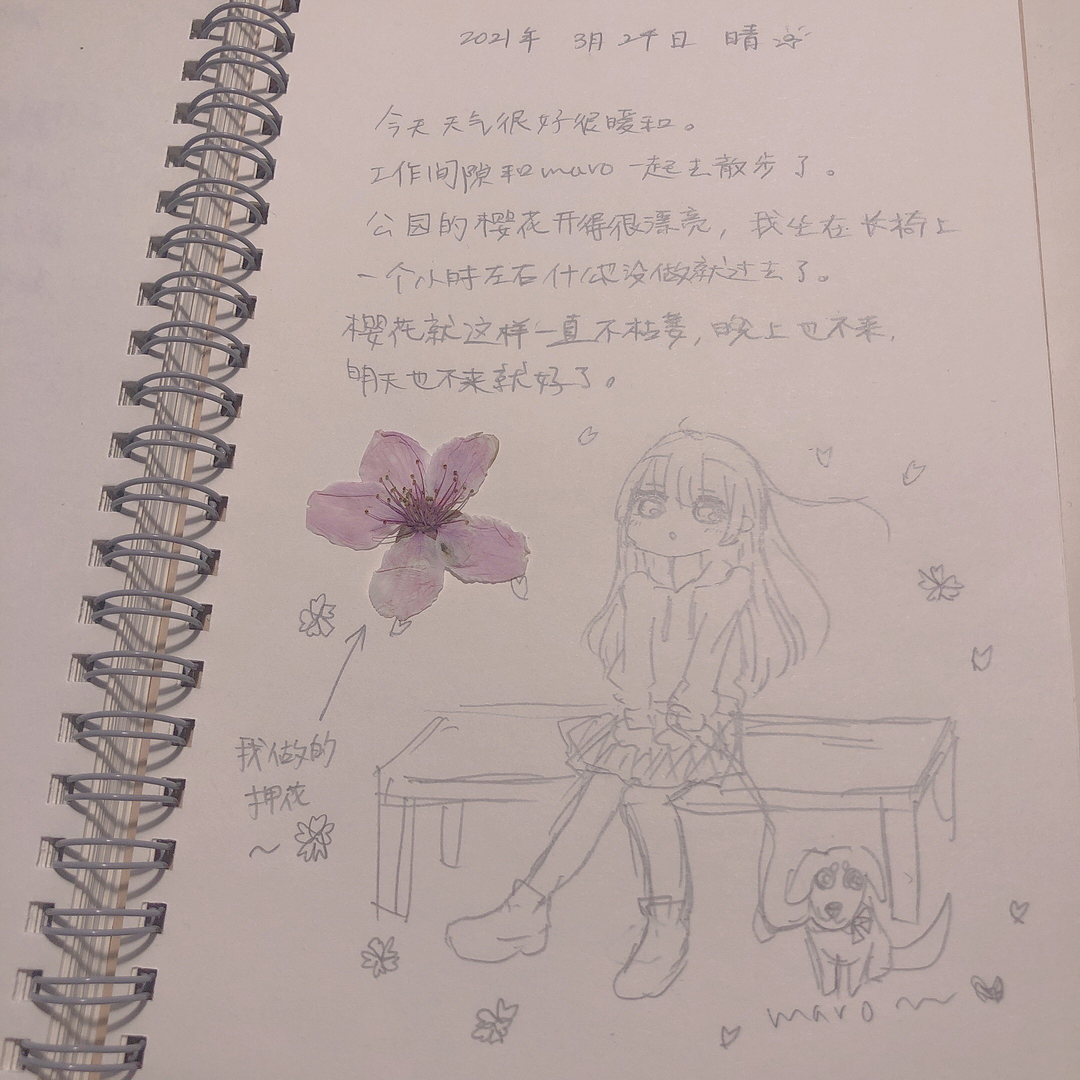 2021年 3月24日 晴
今天天气很好很暖和。
工作间隙和maro一起去散步了。
公园的樱花开得很漂亮，我坐在长椅上
一个小时左右什么也没做就过去了。
樱花就这样一直不枯萎，晚上也不来，
明天也不来就好了。
我做的
押花
～
maro～